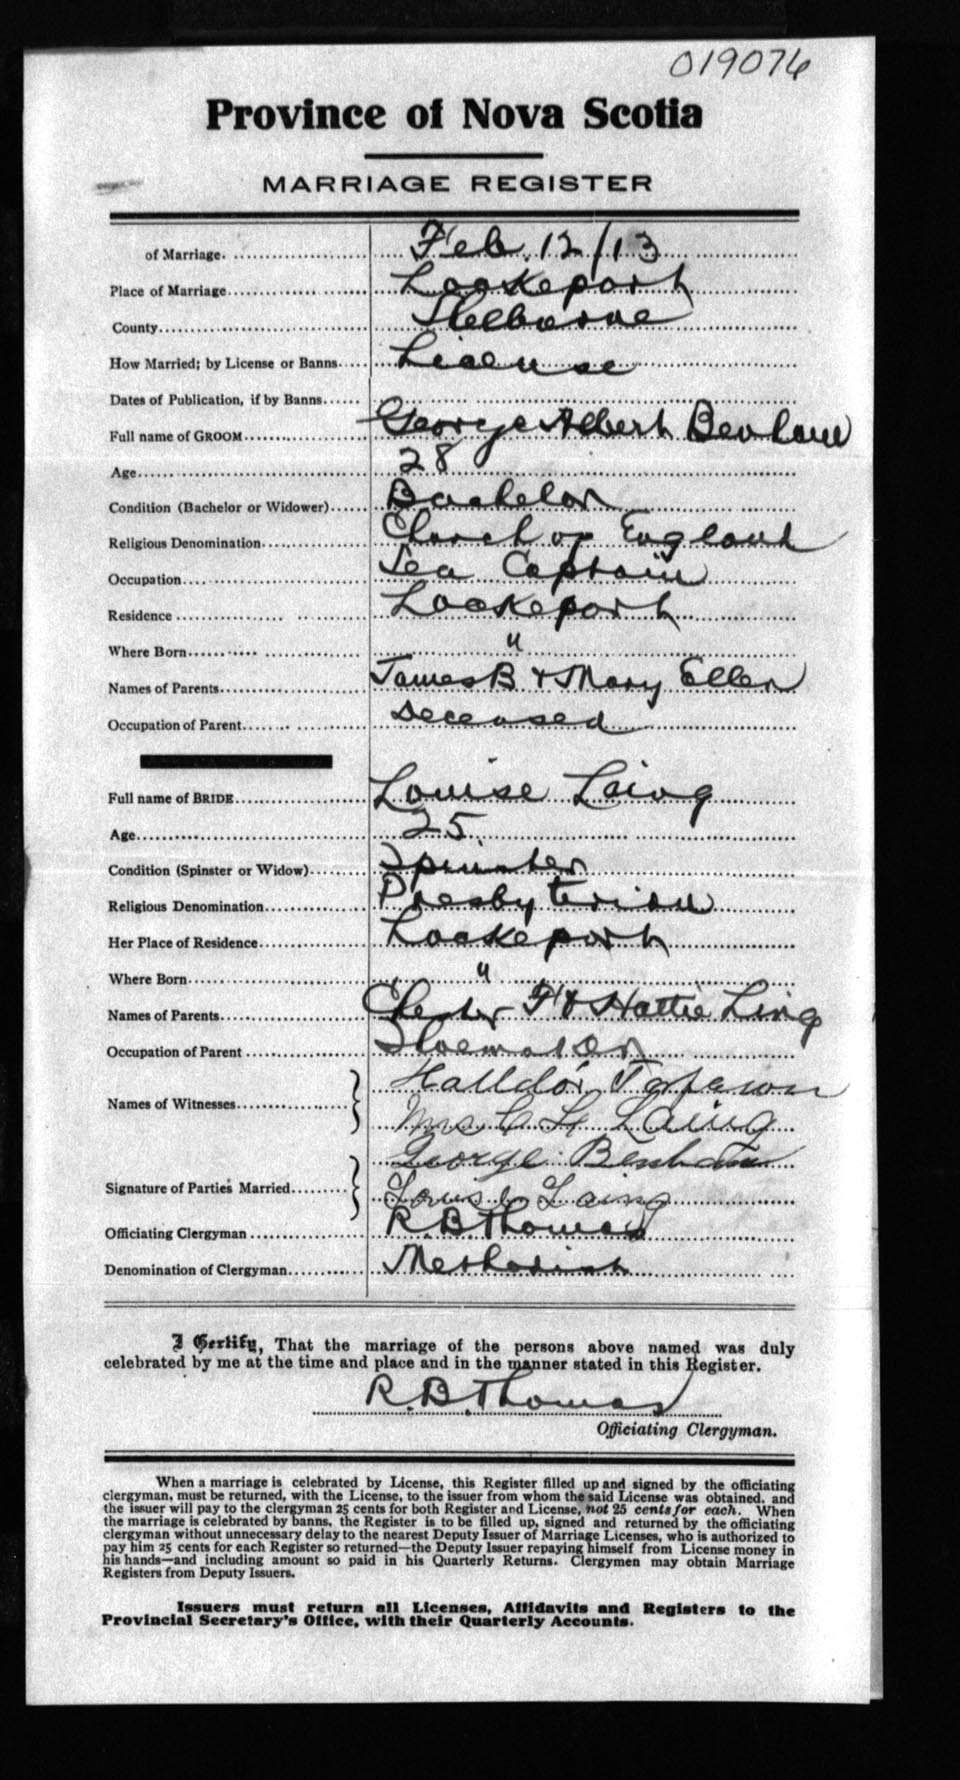 019076
Province of Nova Scotia
MARRIAGE REGISTER
of Marriage. Feb. 12/13
Place of Marriage Lockeport
County Shelburne
How Married; by License or Banns License
Dates of Publication, if by Banns
Full name of GROOM George Albert Benham
Age 28
Condition (Bachelor or Widower) Bachelor
Religious Denomination Church of England
Occupation Sea Captain
Residence Lockeport
Where Born "
Names of Parents James B & Mary Ellen
Occupation of Parent Deceased
Full name of BRIDE Louise Laing
Age 25
Condition (Spinster or Widow) Spinster
Religious Denomination Presbyterian
Her Place of Residence Lockeport
Where Born "
Names of Parents Chester F & Hattie Ling
Occupation of Parent Shoemaker
Names of Witnesses Halldór
Mrs C F Laing
George Benham
Signature of Parties Married Louise Laing
Officiating Clergyman R. B. Thomas
Denomination of Clergyman Methodist
I Certify, That the marriage of the persons above named was duly
celebrated by me at the time and place and in the manner stated in this Register.
R. B. Thomas
Officiating Clergyman.
When a marriage is celebrated by License, this Register filled up and signed by the officiating
clergyman, must be returned, with the License, to the issuer from whom the said License was obtained, and
the issuer will pay to the clergyman 25 cents for both Register and License, not 25 cents for each. When
the marriage is celebrated by banns, the Register is to be filled up, signed and returned by the officiating
clergyman without unnecessary delay to the nearest Deputy Issuer of Marriage Licenses, who is authorized to
pay him 25 cents for each Register so returned—the Deputy Issuer repaying himself from License money in
his hands—and including amount so paid in his Quarterly Returns. Clergymen may obtain Marriage
Registers from Deputy Issuers.
Issuers must return all Licenses, Affidavits and Registers to the
Provincial Secretary's Office, with their Quarterly Accounts.